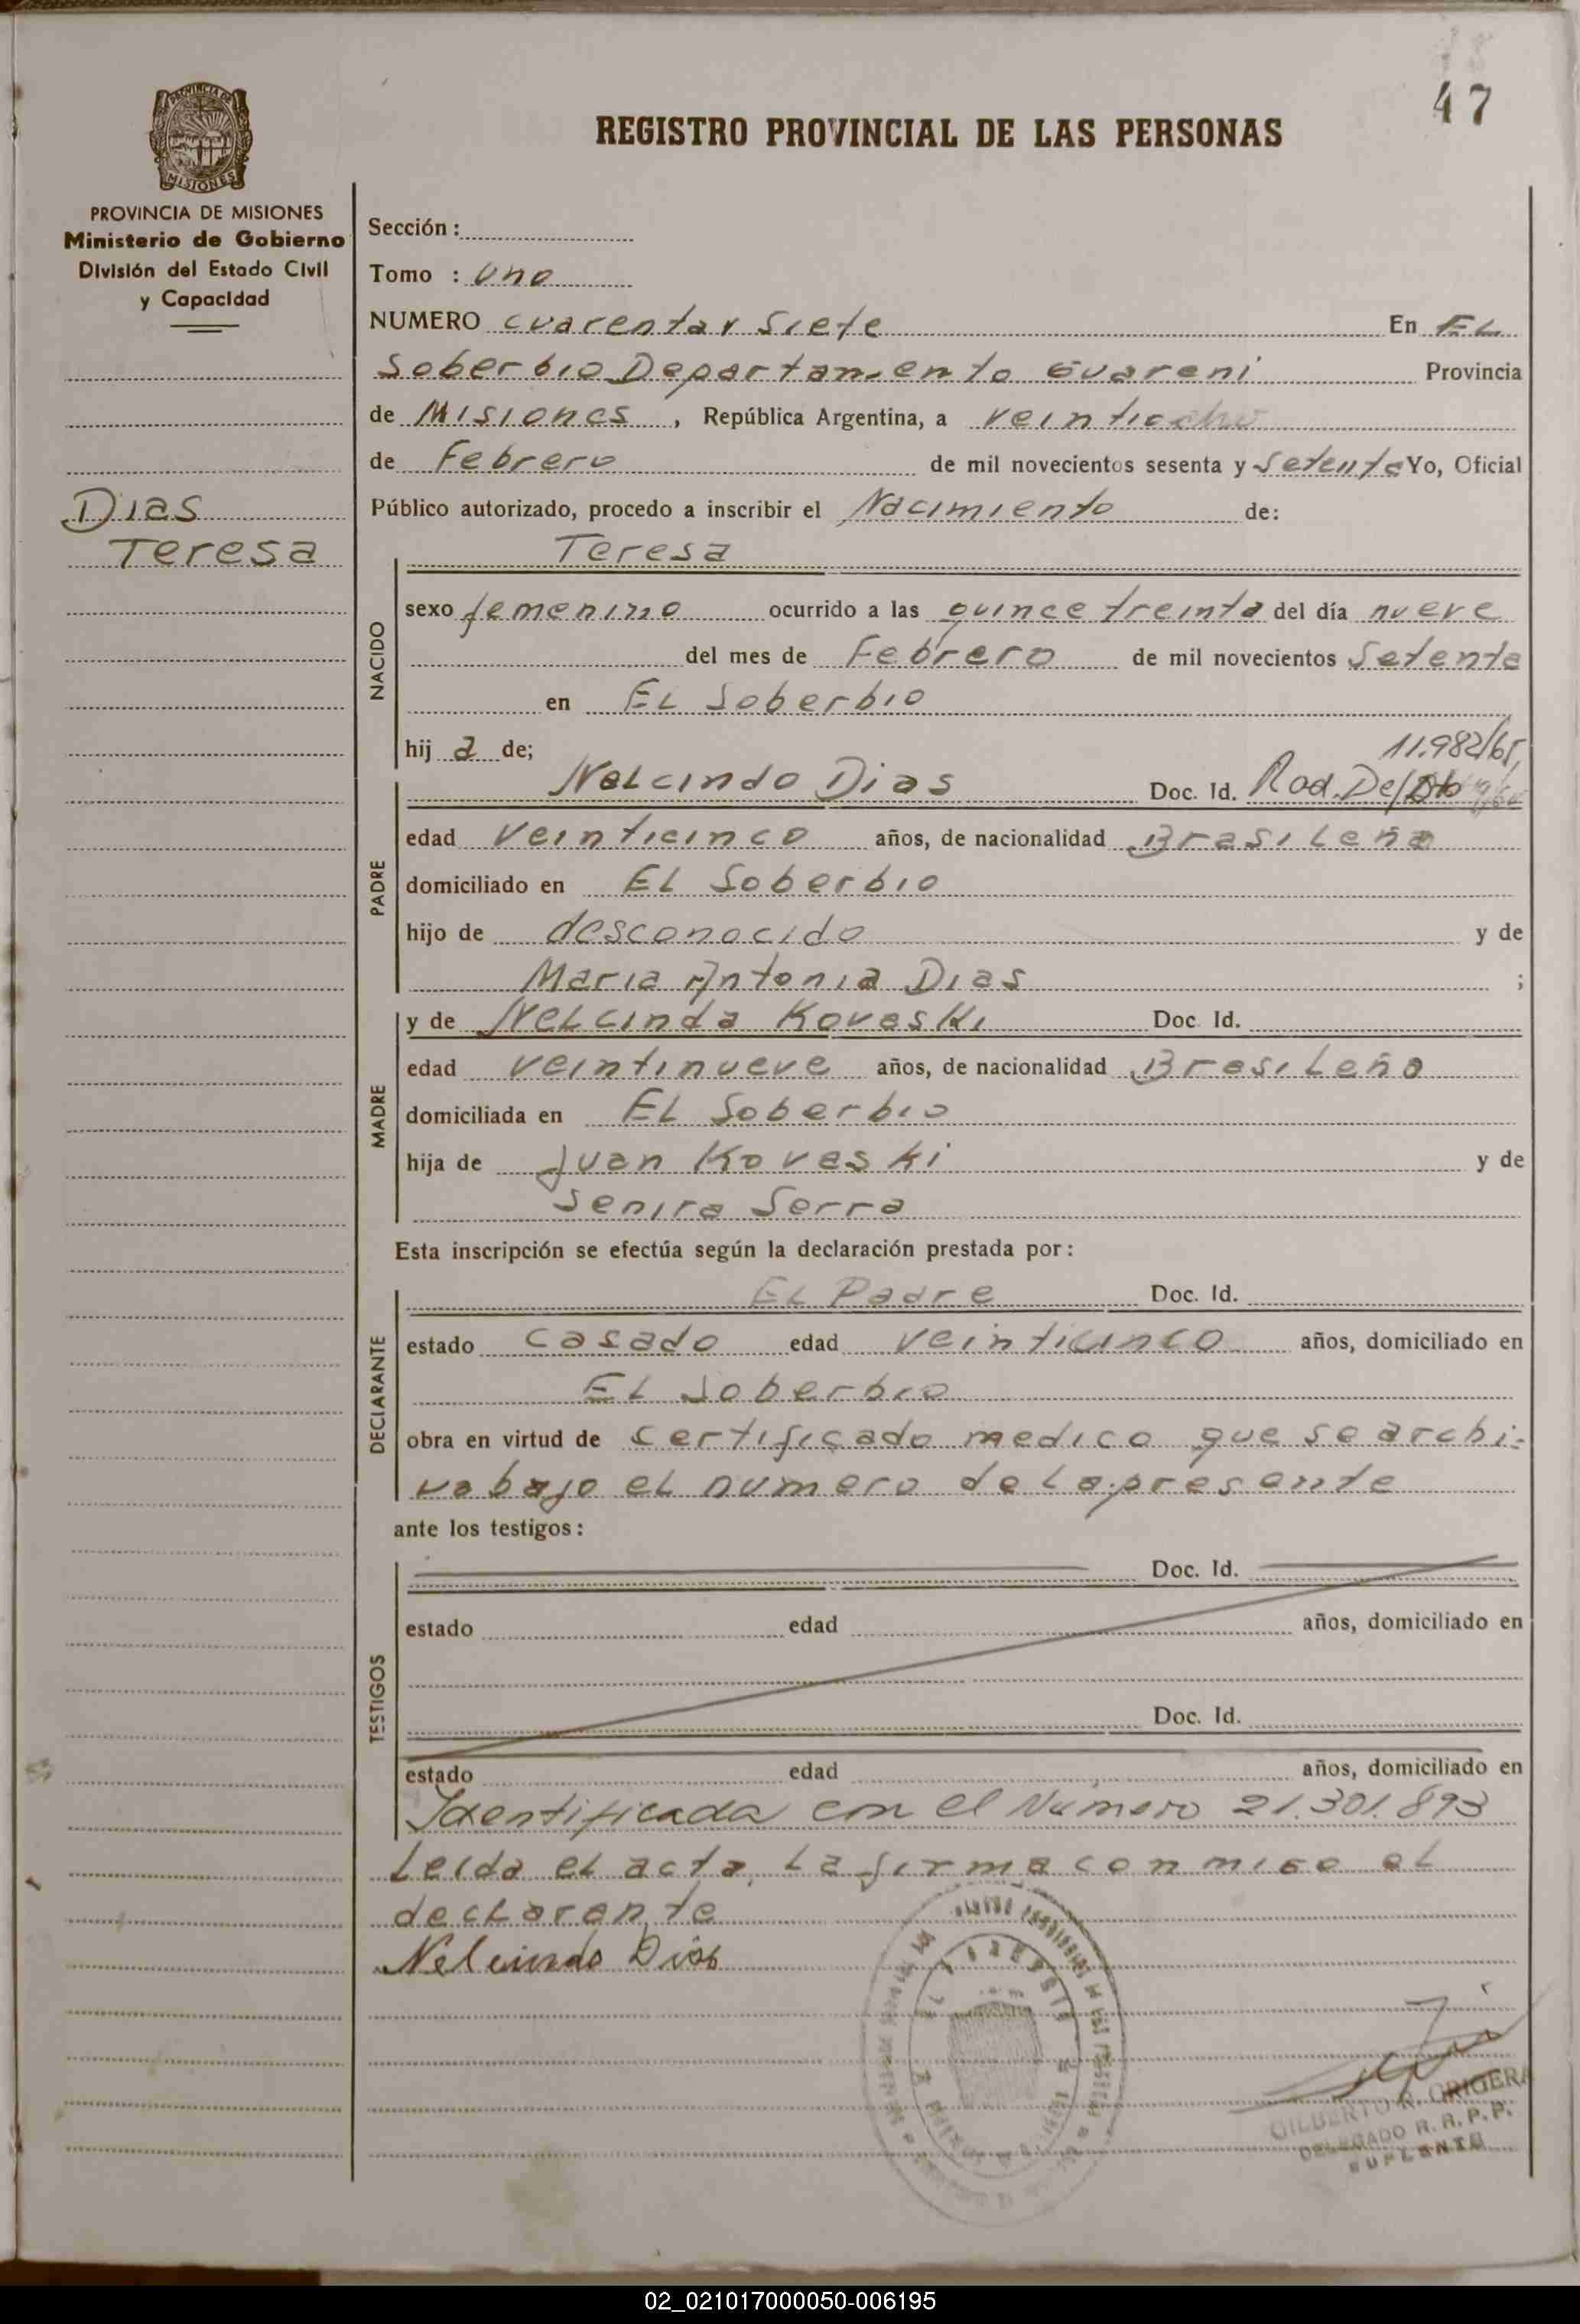 47
REGISTRO PROVINCIAL DE LAS PERSONAS
PROVINCIA DE MISIONES
Ministerio de Gobierno
División del Estado Civil
y Capacidad
Dias
Teresa
Sección :
Tomo : Uno
NUMERO cuarentay Siete En EL
Soberbio Departamento Guareni Provincia
de Misiones , República Argentina, a veintiocho
de Febrero de mil novecientos sesenta y Setenta Yo, Oficial
Público autorizado, procedo a inscribir el Nacimiento de:
Teresa
NACIDO
sexo femenino ocurrido a las quince treinta del día nueve
del mes de Febrero de mil novecientos Setenta
en EL Soberbio
hij a de;
11.982/65
PADRE
Nelcindo Dias Doc. Id. Rad. De/
edad veinticinco años, de nacionalidad Brasileña
domiciliado en EL Soberbio
hijo de desconocido y de
Maria Antonia Dias ;
MADRE
y de Nelcinda Koveski Doc. Id.
edad veintinueve años, de nacionalidad Brasileño
domiciliada en EL Soberbio
hija de Juan Koveski y de
Senira Serra
Esta inscripción se efectúa según la declaración prestada por:
DECLARANTE
EL Padre Doc. Id.
estado casado edad veinticinco años, domiciliado en
EL Soberbio
obra en virtud de certificado medico que se archi-
va bajo el numero de la presente
ante los testigos:
TESTIGOS
Doc. Id.
estado edad años, domiciliado en
Doc. Id.
estado edad años, domiciliado en
Identificada con el Número 21.301.893
Leida el acta, La firma conmigo el
declarante
Nelcindo Dias
GILBERTO R. ORIGERA
DELEGADO R. R. P. P.
SUPLENTE
02_021017000050-006195